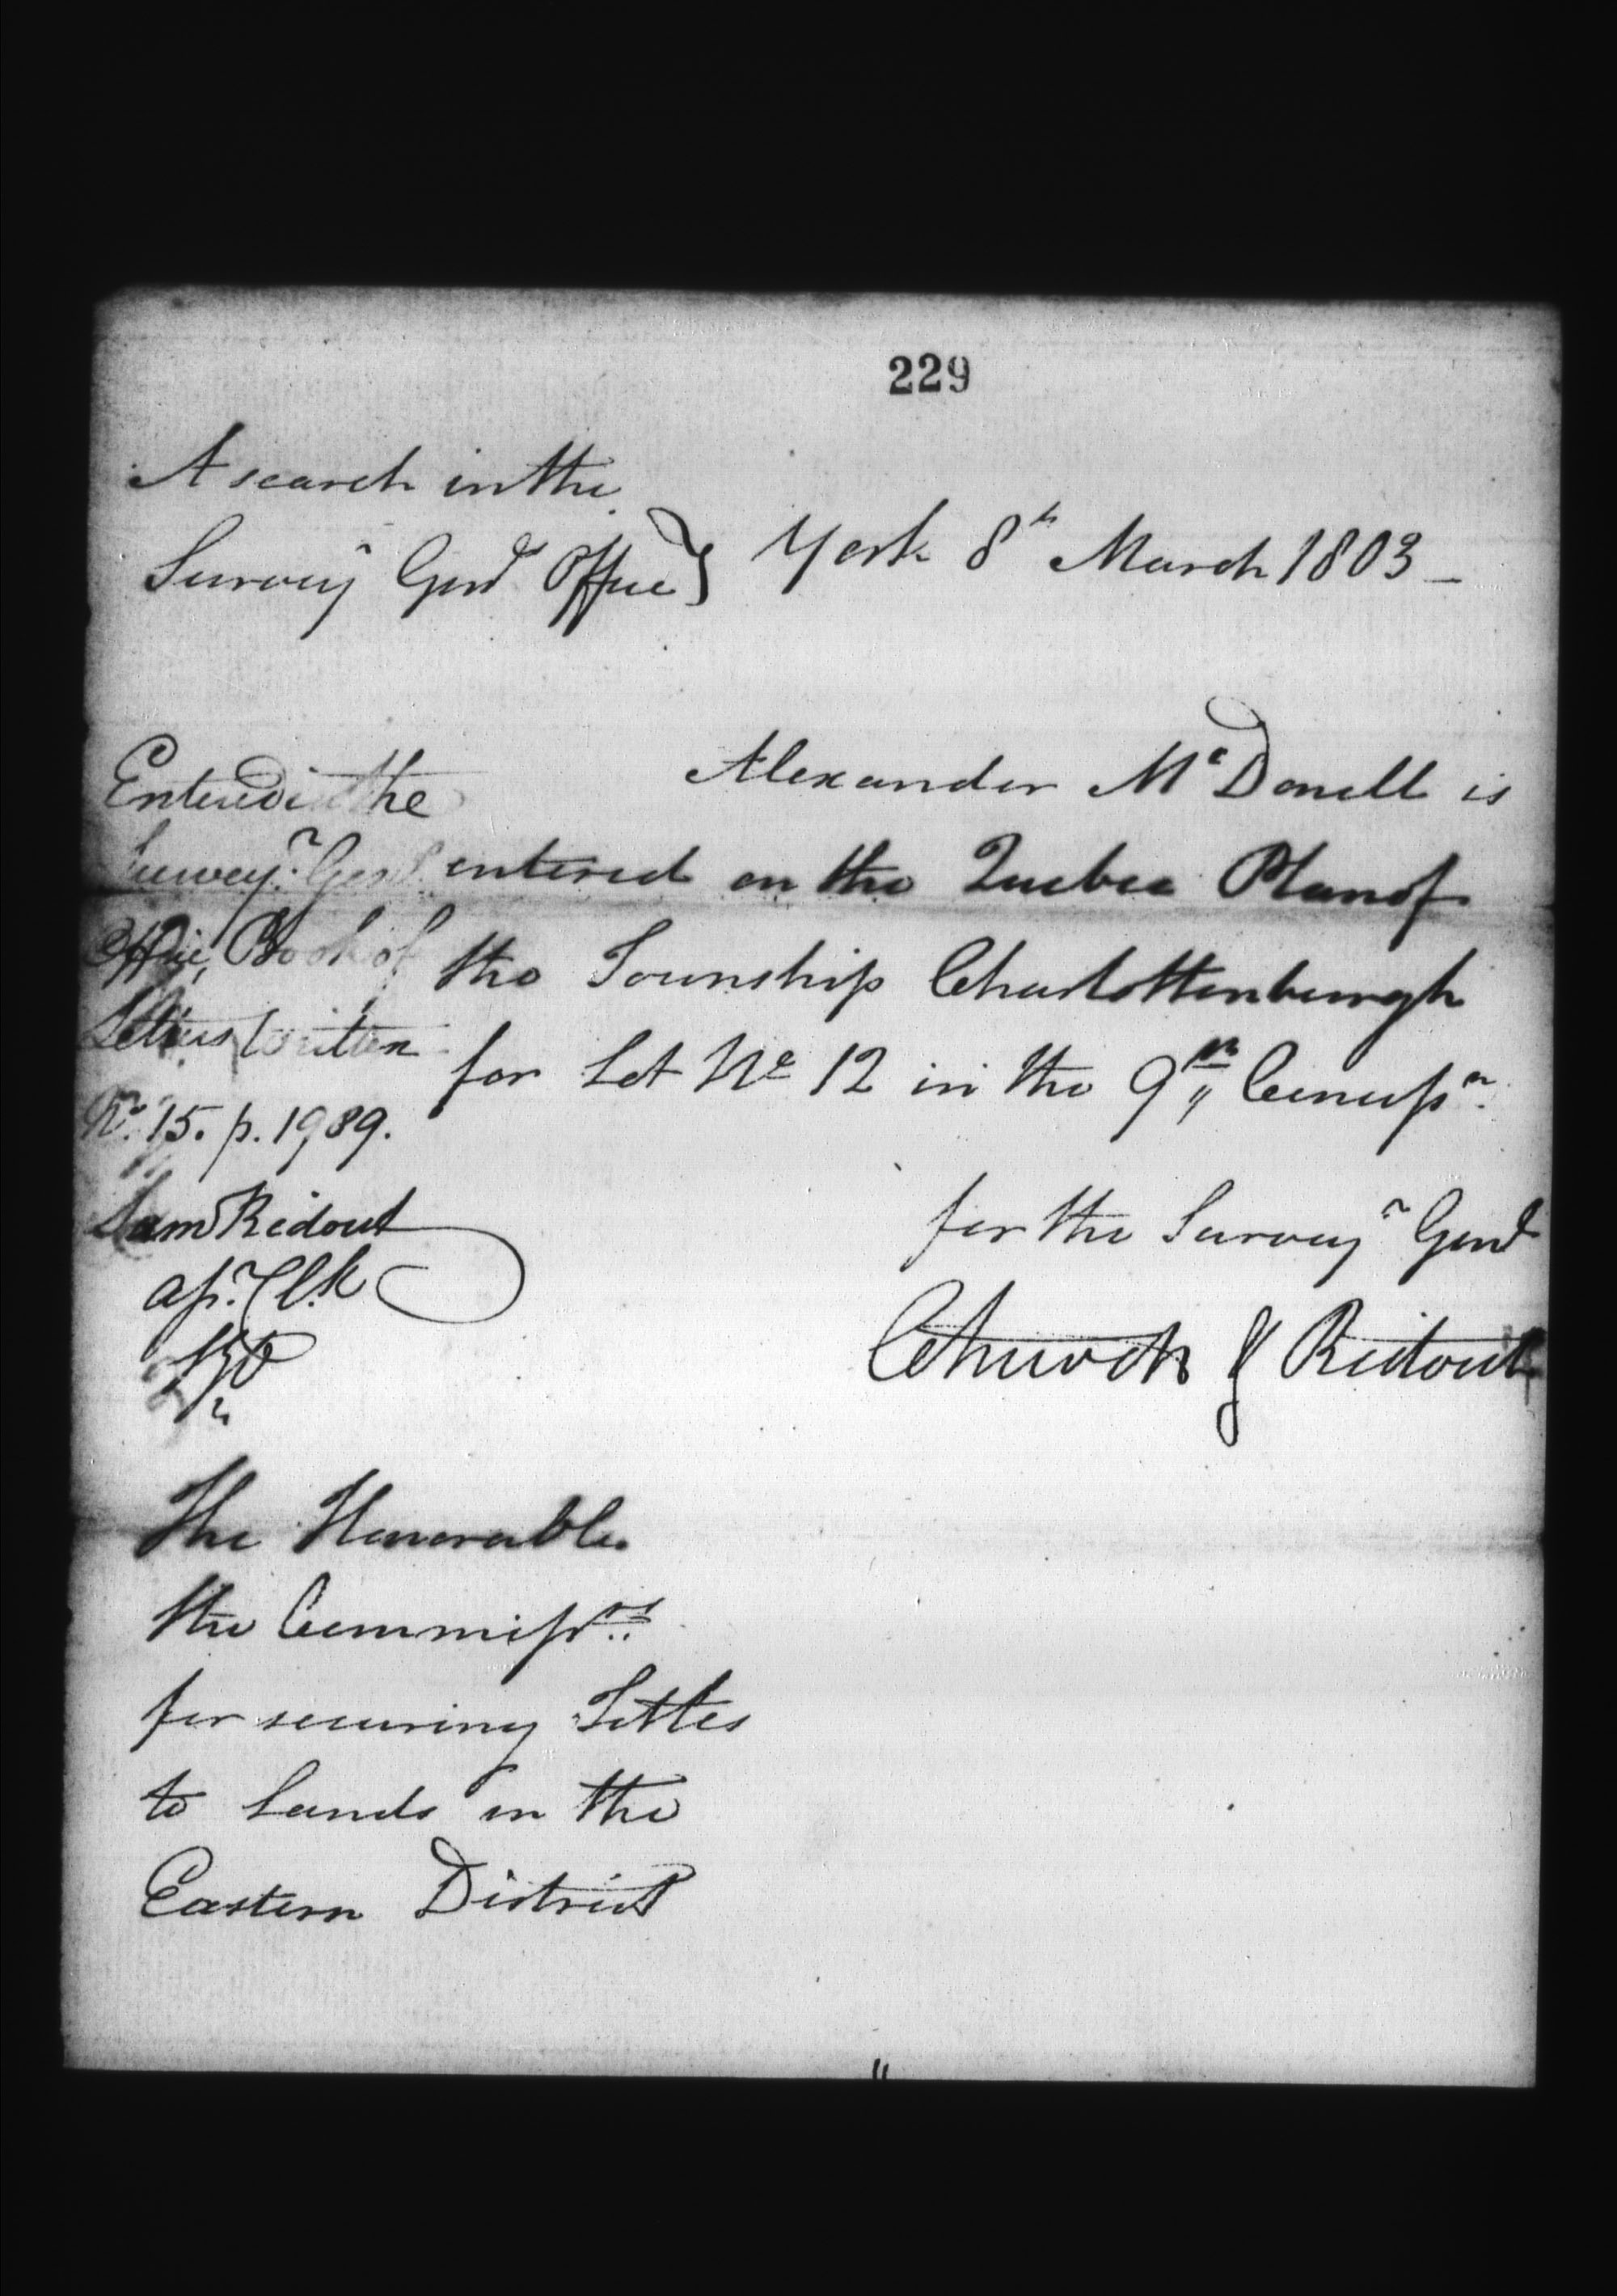 229
A search in the
Survey.r Gen.l Office } York 8th March 1803 —
Alexander Mc Donell is
entered on the Quebec Plan of
the Township Charlottenburgh
for Lot No 12 in the 9th Concessn.
for the Surveyr Genl
Chewett & Ridout
Entered in the
Surveyr. Genl.
Office, Book of
Letters written
No. 15. p. 1989.
Sam Ridout
asr. Clk
The Honorable
the Commissrs.
for securing Titles
to Lands in the
Eastern District